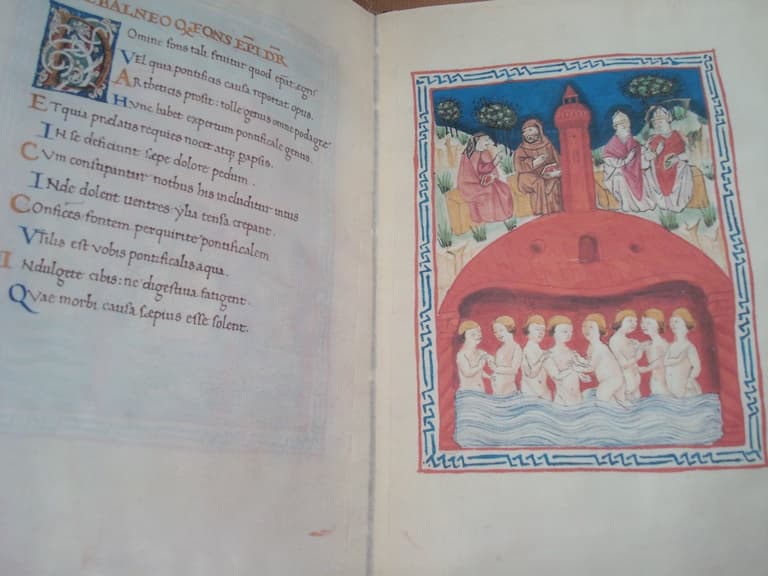 EBALNEO Q̃ FONS EP̄I DR̄
Omine fons tali fruitur quod
VEl quia pontificis causa reportat opus.
ARtheticis prosit: tolle genus omne podagre
HVnc habet expertum pontificale genus.
ETquia prælatis requies nocet atq;
INse deficiunt sæpe dolore pedum.
CVm constipantur nothus his includitur intus
INde dolent uentres ylia tensa crepant.
COnfices fontem perquirite pontificalem
VTilis est uobis pontificalis aqua.
INdulgete cibis: ne digestiua fatigent
QVae morbi causa sæpius esse solent.